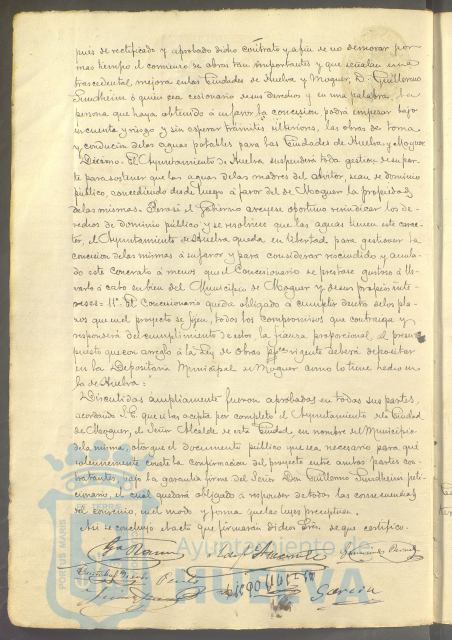 pués de rectificado y aprobado dicho contrato y a fin de no demorar por
mas tiempo el comienzo de obras tan importantes y que señalan una
trascedental mejora en las Ciudades de Huelva y Moguer, D. Guillermo
Sundheim ó quien sea cesionario de sus derechos y en una palabra, la
persona que haya obtenido á su favor la concesion podrá empezar bajo
su cuenta y riesgo y sin esperar trámites ulteriores, las obras de toma
y conduccion de las aguas potables para las Ciudades de Huelva y Moguer
=Décimo= El Ayuntamiento de Huelva suspenderá toda gestion de su par-
te para sostener que las aguas de las madres del Avitor, sean de dominio
público, concediendo desde luego á favor del de Moguer la propiedad
de las mismas. Pero si el Gobierno creyese oportuno reivindicar los de-
rechos de dominio público y se resolviese que las aguas tienen este carac-
ter, el Ayuntamiento de Huelva queda en libertad para gestionar la
concesion de las mismas á su favor y para considerar rescindido y anula-
do este Contrato á menos que el Concesionario se prestase gustoso á lle-
varlo á cabo en bien del Municipio de Moguer y de sus propios inte-
reses= 11º El Concesionario queda obligado á cumplir dentro de los pla-
zos que en el proyecto se fijen, todos los compromisos que contraiga y
responderá del cumplimiento de estos la fianza proporcional al presu-
puesto que con arreglo á la Ley de Obras pp.cas vigente deberá depositar
en la Depositaría Municipal de Moguer como lo tiene hecho en
la de Huelva=
Discutidas ampliamente fueron aprobadas en todas sus partes,
acordando S.E. que si las acepta por completo el Ayuntamiento de la Ciudad
de Moguer, el Señor Alcalde de esta Ciudad, en nombre del Municipio
de la misma, otorgue el documento público que sea necesario para que
solemnemente conste la confirmacion del proyecto entre ambas partes con-
tratantes bajo la garantia firme del Señor Don Guillermo Sundheim peti-
cionario, el cual quedará obligado á responder de todas las consecuencias
del convenio, en el modo y forma que las leyes preceptuan.
Asi se concluyó el acto que firmarán dichos Sres. de que certifico.
Garcia
Ayuntamiento de
HUELVA
PORTUS MARIS